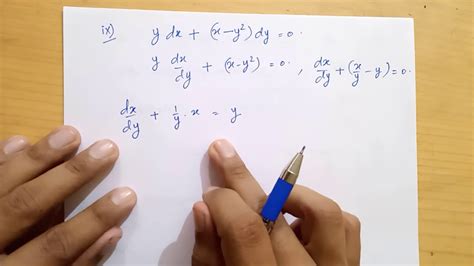 ix) y dx + (x-y²) dy = 0.
y dx/dy + (x-y²) = 0. , dx/dy + (x/y - y) = 0.
dx/dy + 1/y . x = y